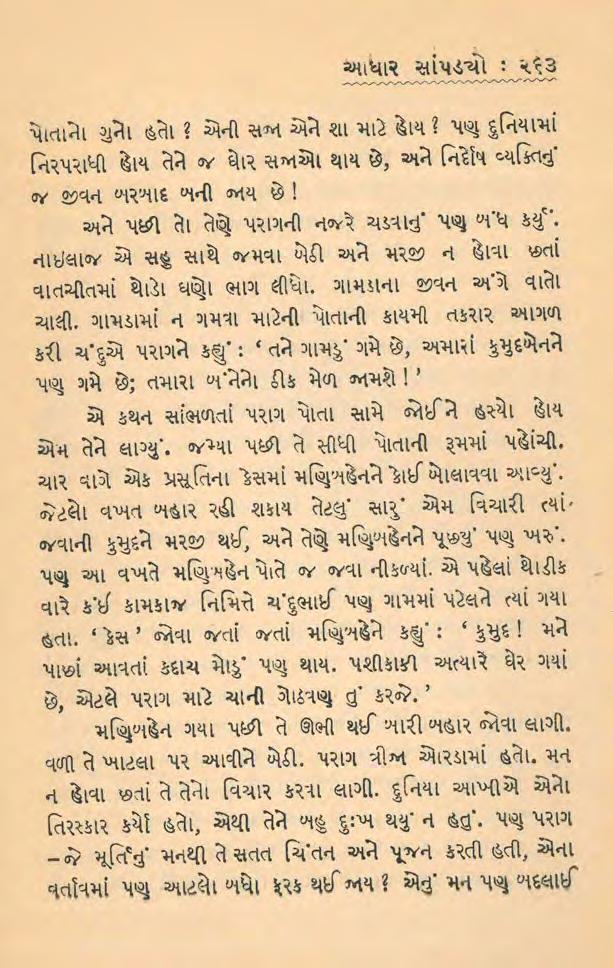 આધાર સાંપડ્યો : ૨૬૩
પોતાનો ગુનો હતો ? એની સજા એને શા માટે હોય ? પણ દુનિયામાં
નિરપરાધી હોય તેને જ ઘોર સજાઓ થાય છે, અને નિર્દોષ વ્યક્તિનું
જ જીવન બરબાદ બની જાય છે !
અને પછી તો તેણે પરાગની નજરે ચડવાનું પણ બંધ કર્યું.
નાઇલાજ એ સહુ સાથે જમવા બેઠી અને મરજી ન હોવા છતાં
વાતચીતમાં થોડો ઘણો ભાગ લીધો. ગામડાના જીવન અંગે વાતો
ચાલી. ગામડામાં ન ગમવા માટેની પોતાની કાયમી તકરાર આગળ
કરી ચંદુએ પરાગને કહ્યું : ‘ તને ગામડું ગમે છે, અમારાં કુમુદબેનને
પણ ગમે છે; તમારા બંનેનો ઠીક મેળ જામશે ! ’
એ કથન સાંભળતાં પરાગ પોતા સામે જોઈને હસ્યો હોય
એમ તેને લાગ્યું. જમ્યા પછી તે સીધી પોતાની રૂમમાં પહોંચી.
ચાર વાગે એક પ્રસૂતિના કેસમાં મણિબહેનને કોઈ બોલાવવા આવ્યું.
જેટલો વખત બહાર રહી શકાય તેટલું સારું એમ વિચારી ત્યાં
જવાની કુમુદને મરજી થઈ, અને તેણે મણિબહેનને પૂછ્યું પણ ખરું.
પણ આ વખતે મણિબહેન પોતે જ જવા નીકળ્યાં. એ પહેલાં થોડીક
વારે કંઈ કામકાજ નિમિત્તે ચંદુભાઈ પણ ગામમાં પટેલને ત્યાં ગયા
હતા. ‘ કેસ ’ જોવા જતાં જતાં મણિબહેને કહ્યું : ‘ કુમુદ ! મને
પાછાં આવતાં કદાચ મોડું પણ થાય. પશીકાકી અત્યારે ઘેર ગયાં
છે, એટલે પરાગ માટે ચાની ગોઠવણ તું કરજે. ’
મણિબહેન ગયા પછી તે ઊભી થઈ બારી બહાર જોવા લાગી.
વળી તે ખાટલા પર આવીને બેઠી. પરાગ ત્રીજા ઓરડામાં હતો. મન
ન હોવા છતાં તે તેનો વિચાર કરવા લાગી. દુનિયા આખીએ એનો
તિરસ્કાર કર્યો હતો, એથી તેને બહુ દુઃખ થયું ન હતું. પણ પરાગ
–જે મૂર્તિનું મનથી તે સતત ચિંતન અને પૂજન કરતી હતી, એના
વર્તાવમાં પણ આટલો બધો ફરક થઈ જાય ? એનું મન પણ બદલાઈ